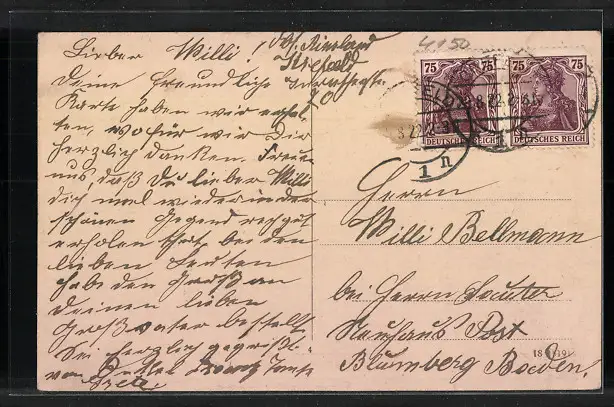 Lieber Willi!
Deine freundliche
Karte haben wir erhal-
ten, wofür wir Dir
herzlich danken. Freuen
uns, daß Du lieber Willi
dich mal wieder in der
schönen Gegend recht gut
erholen thust bei den
lieben Leuten
habe den Gruß an
Deinen lieben
Großvater bestellt
Sei herzlich gegrüßt
von Onkel Tante
Abs. Rinsland
Krefeld
4150
75 75
DEUTSCHES REICH
75 75
DEUTSCHES REICH
8.22
1 n
Herrn
Willi Bellmann
bei Herrn
Neuhaus Post
Blumberg Baden.
18